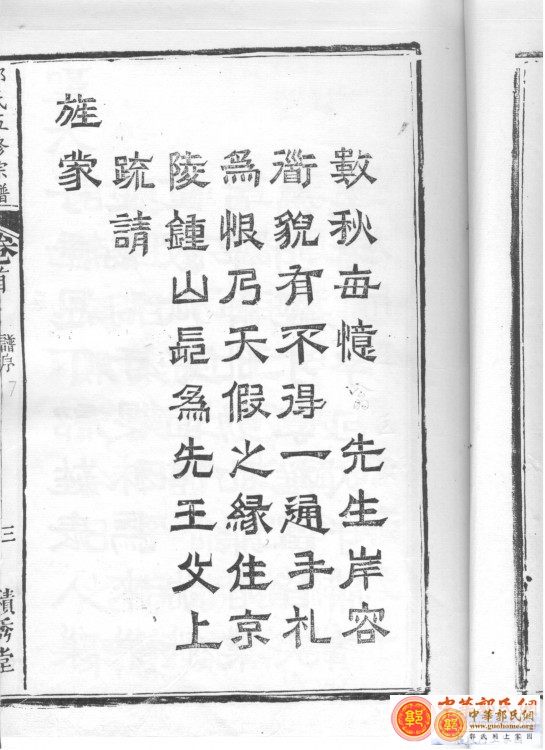 數秋每憶 先生岸容
衜貌有不得一通手札
為恨乃天假之緣住京
陵鍾山長為先王父上
疏請
旌蒙
氏五修宗譜
卷首
譜序
7
三
積秀堂
中華郭氏網
中華郭氏網
www.guohome.org
郭氏网上家园